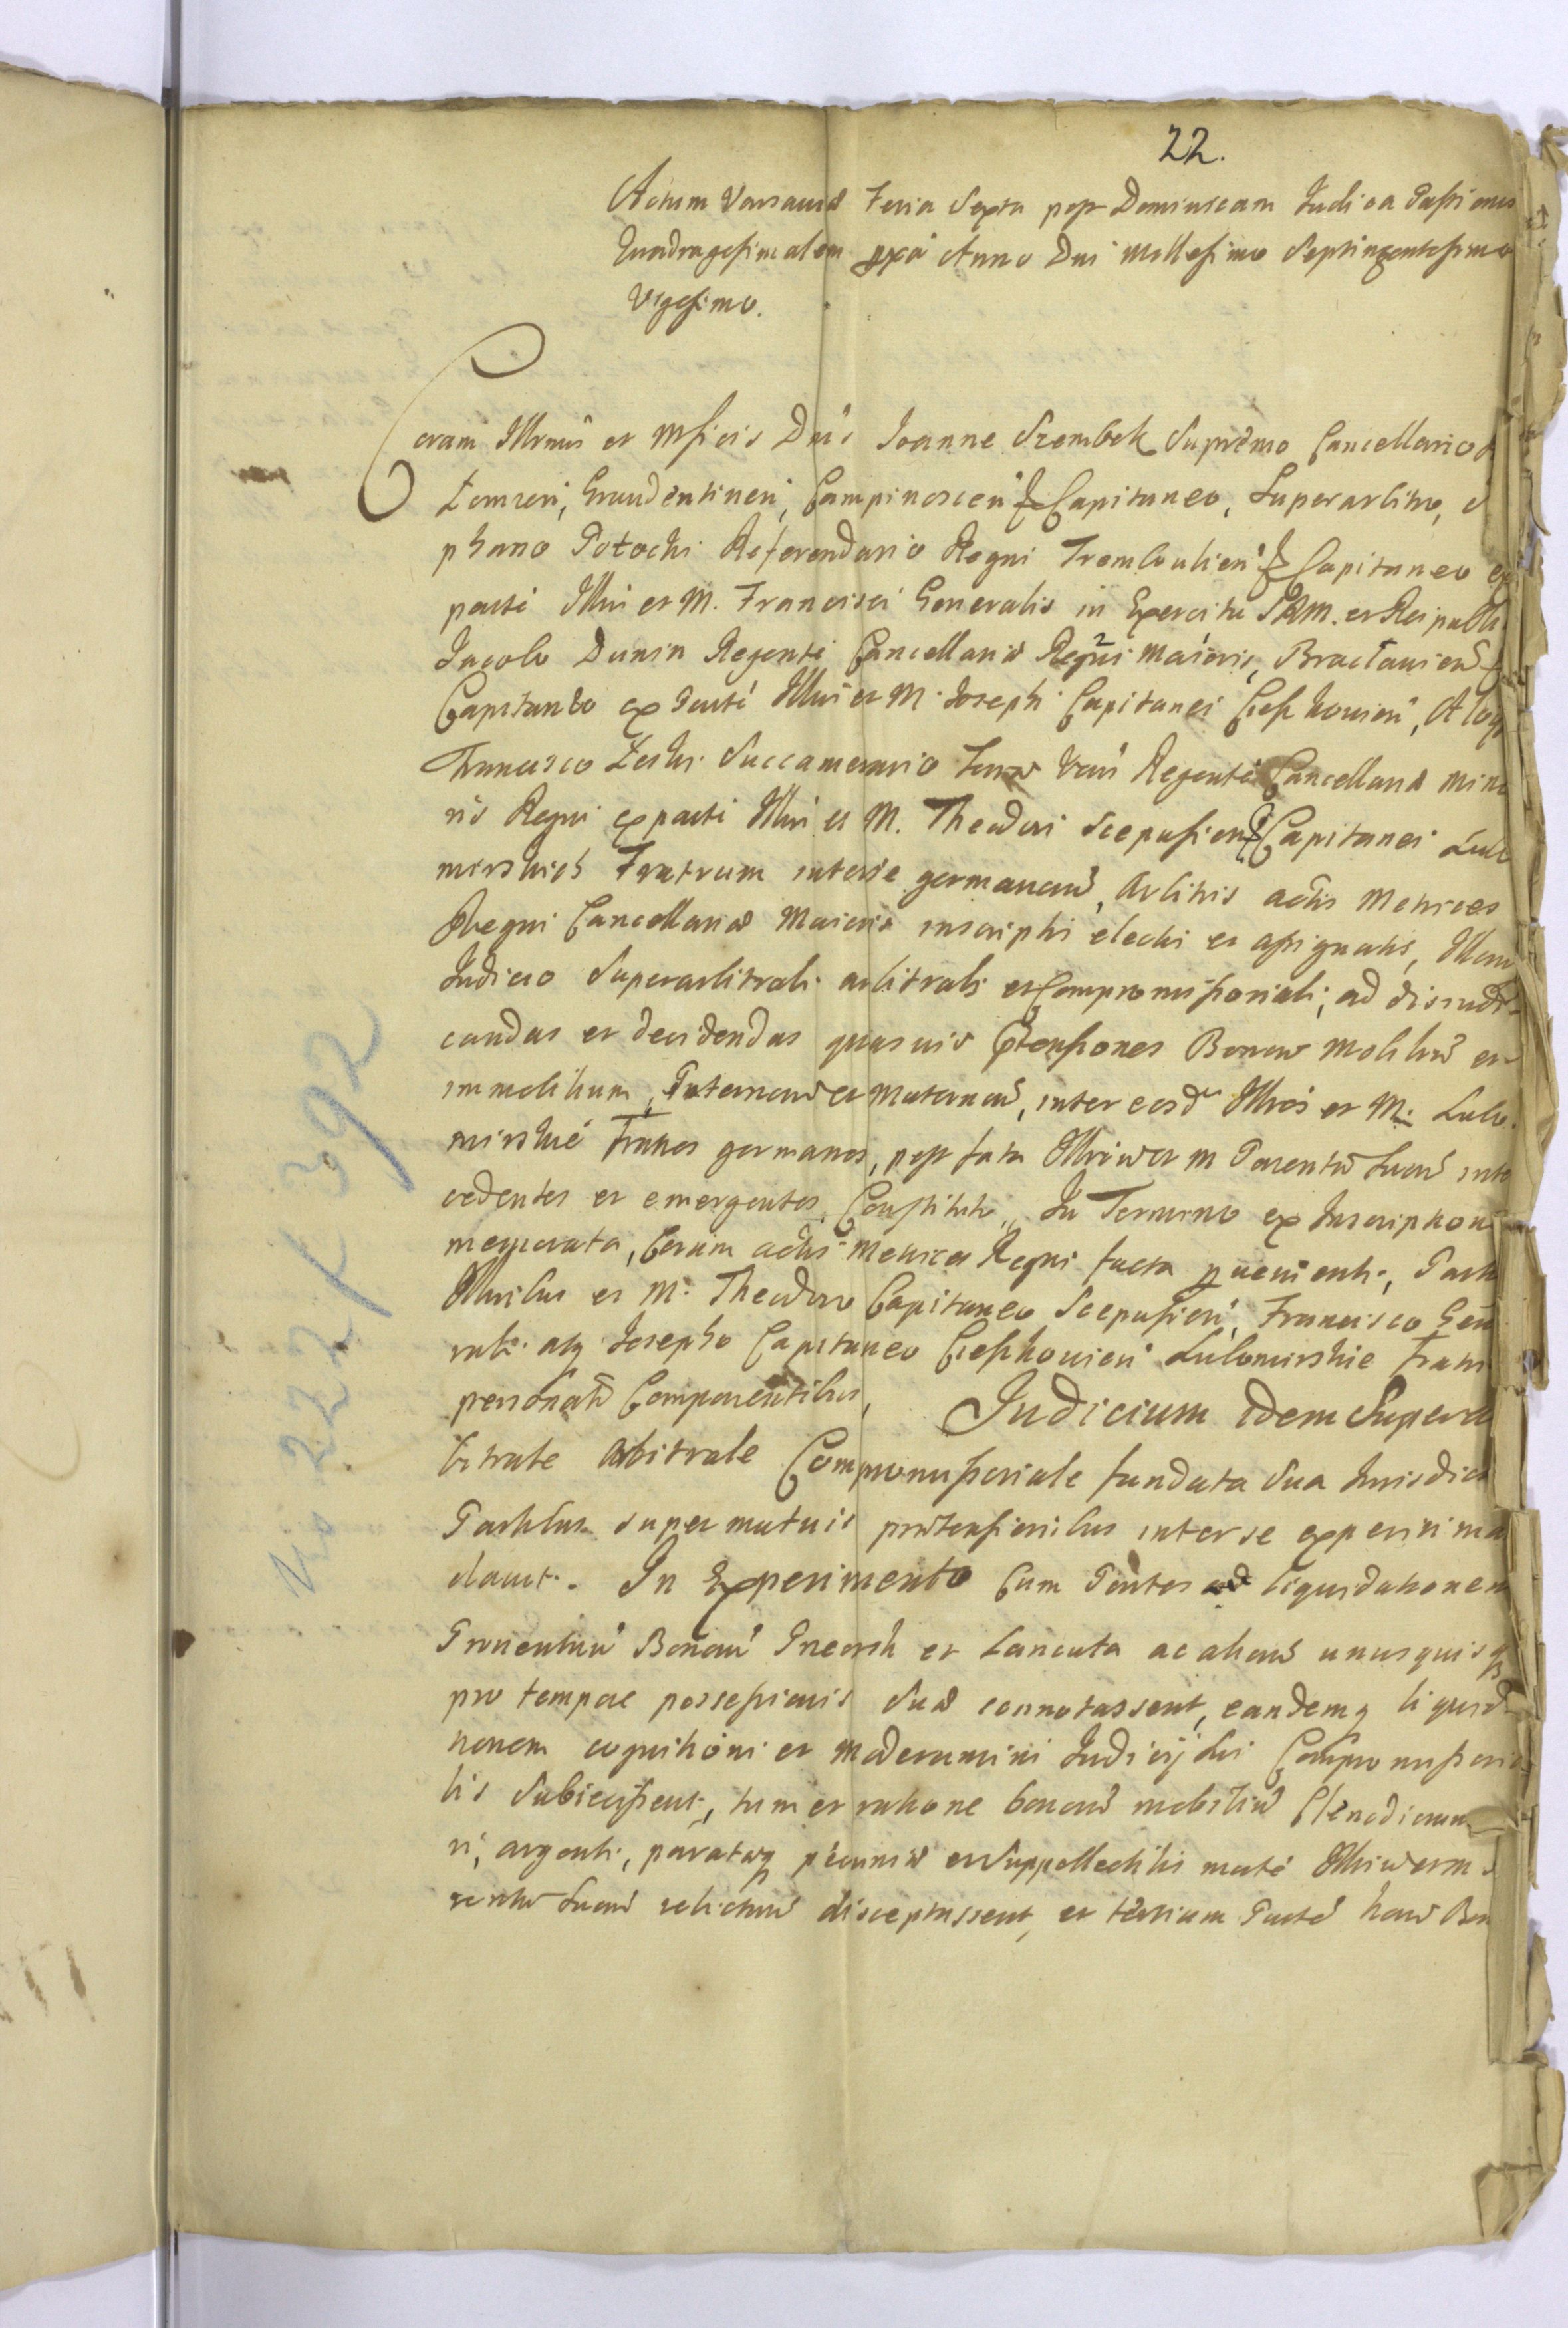 22.
Actum Varsaviæ Feria Sexta post Dominicam Judica Passionis
Quadragesimalem pxã Anno Dni Millesimo Septingentesimo
Vigesimo.
Coram Illrmis et Mficis Dnis Joanne Szembek Supremo Cancellario
Lomzen, Graudentinen, Campinoscen & Capitaneo, Superarbitro,
phano Potocki Referendario Regni Trembovlien & Capitaneo ex
parte Illmi et M. Francisci Generalis in Exercitu SRM. et Reipubli
Jacobo Dunin Regente Cancellariæ Regni Maioris, Braclavien &
Capitaneo ex parte Illmi et M. Josephi Capitanei Cieszkovien, Aloy
Francisco Leski Succamerario Terræ Regente Cancellariæ Mino
ris Regni ex parte Illmi et M. Theodori Scepusien & Capitanei Lubo
mirskich Fratrum inter se germanorũ, Arbitris actis Metrices
Regni Cancellariæ Maioris inscriptis electis et assignatis,
Judicio Superarbitrali arbitrali et Compromissoriali, ad dijudi-
candas et decidendas quasvis Prtensiones Bonorũ Mobiliũ et
immobilium, Paternorũ et Maternorũ, inter eosd Illres et M. Lubo-
mirskie Fratres germanos, post fata Illriũ et M Parentũ Suorũ inte
cedentes et emergentes, Constituto, In Termino ex Inscriptione
memorata, Coram actis Metrices Regni facta pvenienti, Parti
Illribus et M. Theodoro Capitaneo Scepusien, Francisco Gene
rali atq Josepho Capitaneo Cieszkovien Lubomirskie Fratri
personalr Comparentibus, Judicium idem Superar
bitrale Arbitrale Compromissoriale fundata Sua Jurisdict
Partibus super mutuis prætensionibus inter se experiri ma
davit. In Experimento Cum Partes ad liquidationem
Proventuũ Bonorũ Preorsk et Lancuta ac aliorũ unusquisq
pro tempore possessionis Suæ connotassent, eandemq liquida
tionem cognitioni et moderamini Judicij Sui Compromissoria
lis Subiecissent, tum et ratione bonorũ mobiliũ Clenodiorum
ri, argenti, paratæq pecuniæ et Suppellectilis
rentũ Suorũ relictorũ disceptassent, et tertiam Partẽ horũ Bon
No 222/392